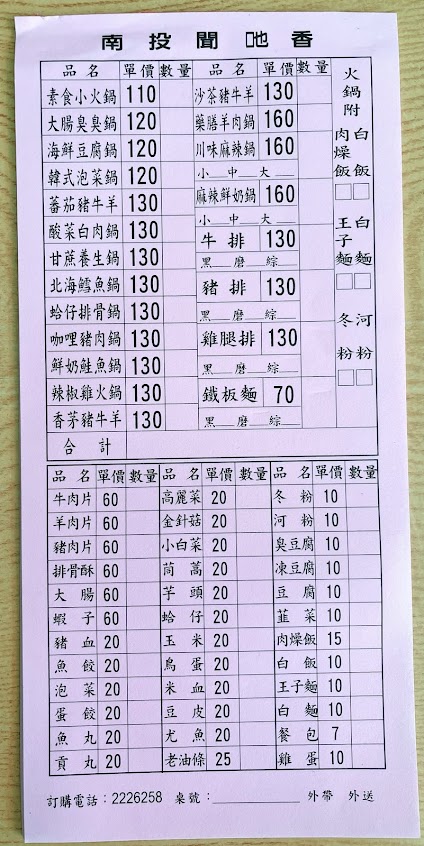 南投聞吔香
品名 單價 數量 品名 單價 數量
素食小火鍋 110 沙茶豬牛羊 130
大腸臭臭鍋 120 藥膳羊肉鍋 160
海鮮豆腐鍋 120 川味麻辣鍋 160
韓式泡菜鍋 120 小__中__大__
蕃茄豬牛羊 130 麻辣鮮奶鍋 160
小__中__大__
酸菜白肉鍋 130 牛排 130
甘蔗養生鍋 130 黑__磨__綜__
北海鱈魚鍋 130 豬排 130
蛤仔排骨鍋 130 黑__磨__綜__
咖哩豬肉鍋 130 雞腿排 130
鮮奶鮭魚鍋 130 黑__磨__綜__
辣椒雞火鍋 130 鐵板麵 70
香茅豬牛羊 130 黑__磨__綜__
合計
火鍋附
白飯□ 肉燥飯□
白麵□ 王子麵□
河粉□ 冬粉□
品名 單價 數量 品名 單價 數量 品名 單價 數量
牛肉片 60 高麗菜 20 冬粉 10
羊肉片 60 金針菇 20 河粉 10
豬肉片 60 小白菜 20 臭豆腐 10
排骨酥 60 茼蒿 20 凍豆腐 10
大腸 60 芋頭 20 豆腐 10
蝦子 60 蛤仔 20 韮菜 10
豬血 20 玉米 20 肉燥飯 15
魚餃 20 鳥蛋 20 白飯 10
泡菜 20 米血 20 王子麵 10
蛋餃 20 豆皮 20 白麵 10
魚丸 20 尤魚 20 餐包 7
貢丸 20 老油條 25 雞蛋 10
訂購電話：2226258 桌號：__________ 外帶 外送